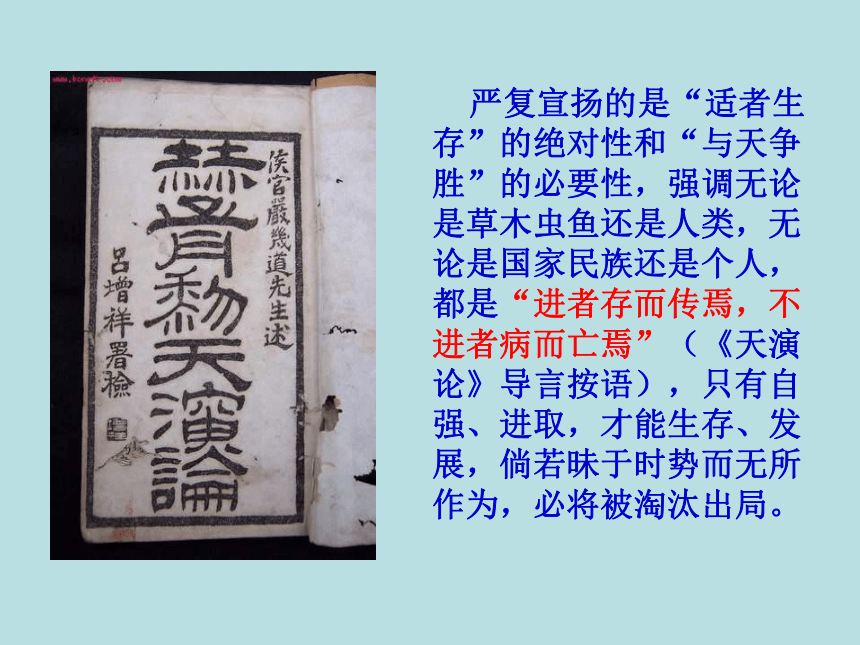 侯官嚴幾道先生述
赫胥黎天演論
呂增祥署檢
严复宣扬的是“适者生
存”的绝对性和“与天争
胜”的必要性，强调无论
是草木虫鱼还是人类，无
论是国家民族还是个人，
都是“进者存而传焉，不
进者病而亡焉”（《天演
论》导言按语），只有自
强、进取，才能生存、发
展，倘若昧于时势而无所
作为，必将被淘汰出局。